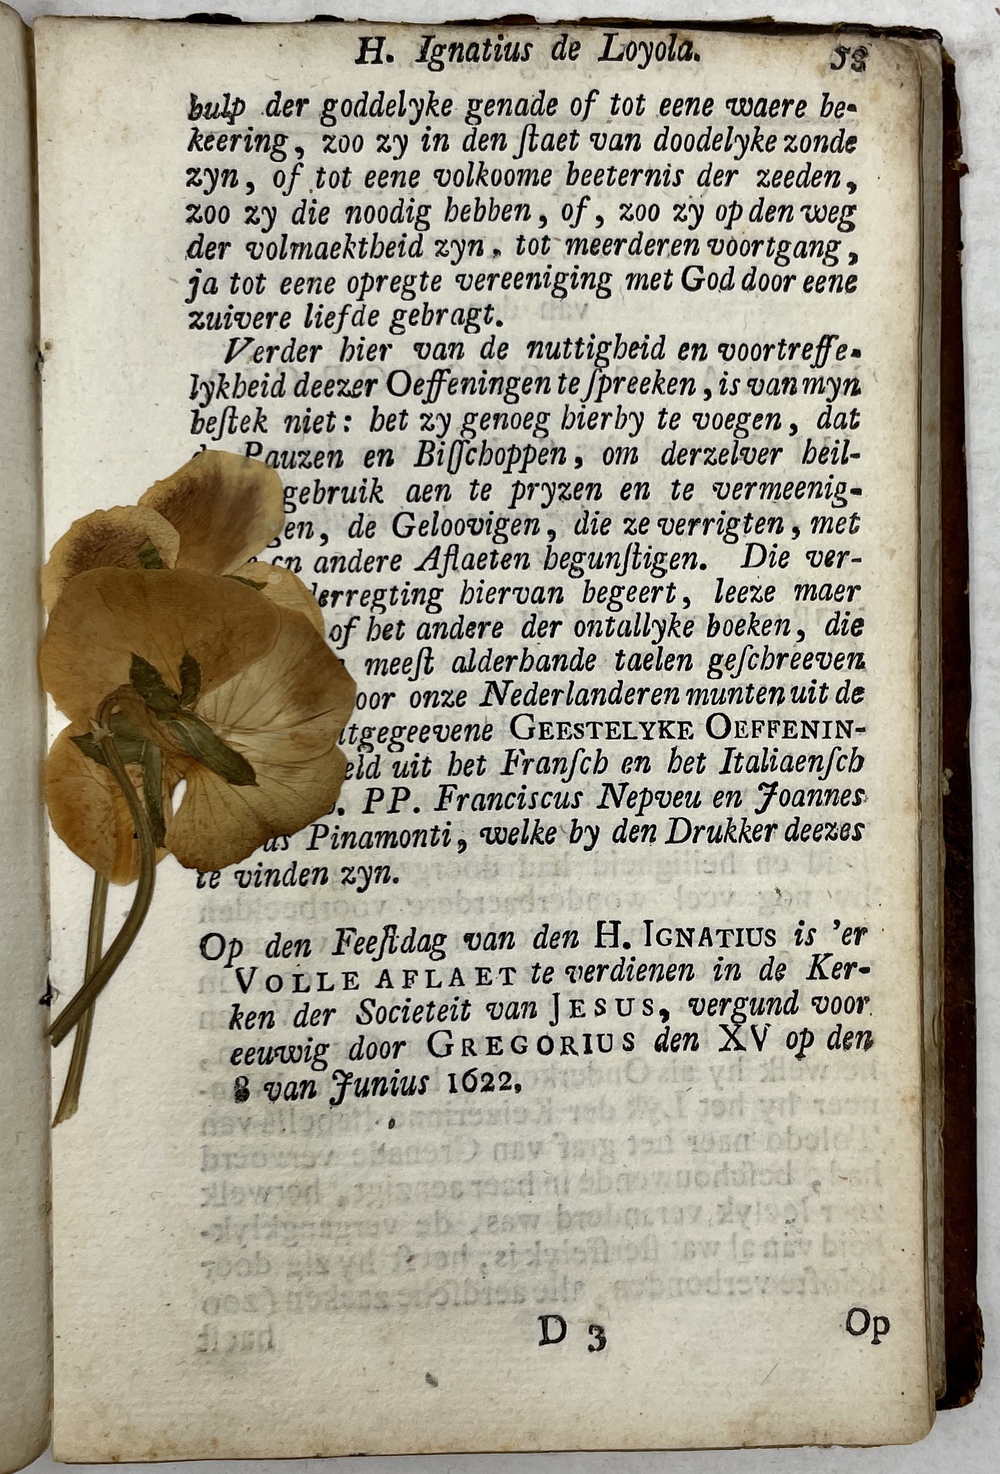 H. Ignatius de Loyola. 53
hulp der goddelyke genade of tot eene waere be-
keering, zoo zy in den ſtaet van doodelyke zonde
zyn, of tot eene volkoome beeternis der zeeden,
zoo zy die noodig hebben, of, zoo zy op den weg
der volmaektheid zyn, tot meerderen voortgang,
ja tot eene opregte vereeniging met God door eene
zuivere liefde gebragt.
Verder hier van de nuttigheid en voortreffe-
lykheid deezer Oeffeningen te ſpreeken, is van myn
beſtek niet: het zy genoeg hierby te voegen, dat
Pauzen en Biſſchoppen, om derzelver heil-
gebruik aen te pryzen en te vermeenig-
gen, de Geloovigen, die ze verrigten, met
en andere Aflaeten begunſtigen. Die ver-
derregting hiervan begeert, leeze maer
of het andere der ontallyke boeken, die
meeſt alderhande taelen geſchreeven
oor onze Nederlanderen munten uit de
itgegeevene GEESTELYKE OEFFENIN-
eld uit het Franſch en het Italiaenſch
PP. Franciscus Nepveu en Joannes
as Pinamonti, welke by den Drukker deezes
te vinden zyn.
Op den Feeſtdag van den H. IGNATIUS is 'er
VOLLE AFLAET te verdienen in de Ker-
ken der Societeit van JESUS, vergund voor
eeuwig door GREGORIUS den XV op den
8 van Junius 1622.
D 3 Op